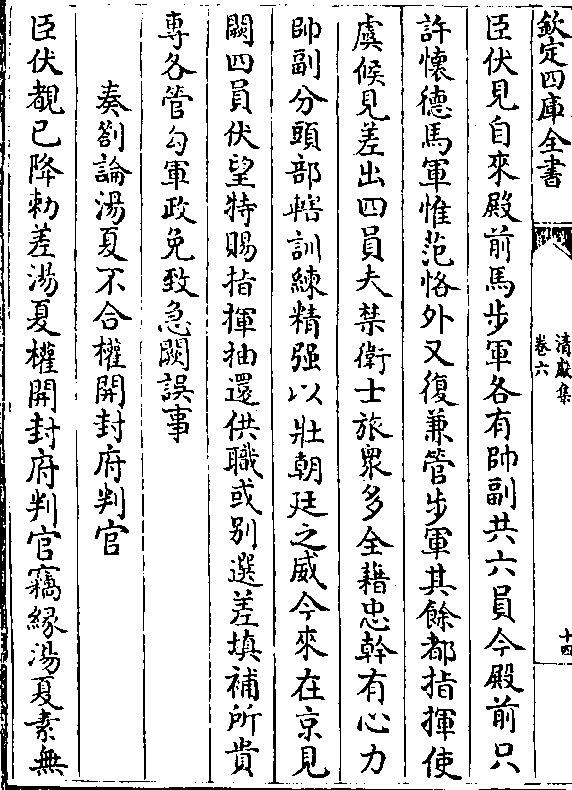 欽定四庫全書
清獻集
卷六
十四
臣伏見自來殿前馬步軍各有帥副共六員今殿前只
許懷德馬軍惟范恪外又復兼管步軍其餘都指揮使
虞候見差出四員夫禁衛士旅衆多全藉忠幹有心力
帥副分頭部轄訓練精强以壯朝廷之威今來在京見
闕四員伏望特賜指揮抽還供職或别選差填補所貴
專各管勾軍政免致急闕誤事
奏劄論湯夏不合權開封府判官
臣伏覩已降勅差湯夏權開封府判官竊緣湯夏素無